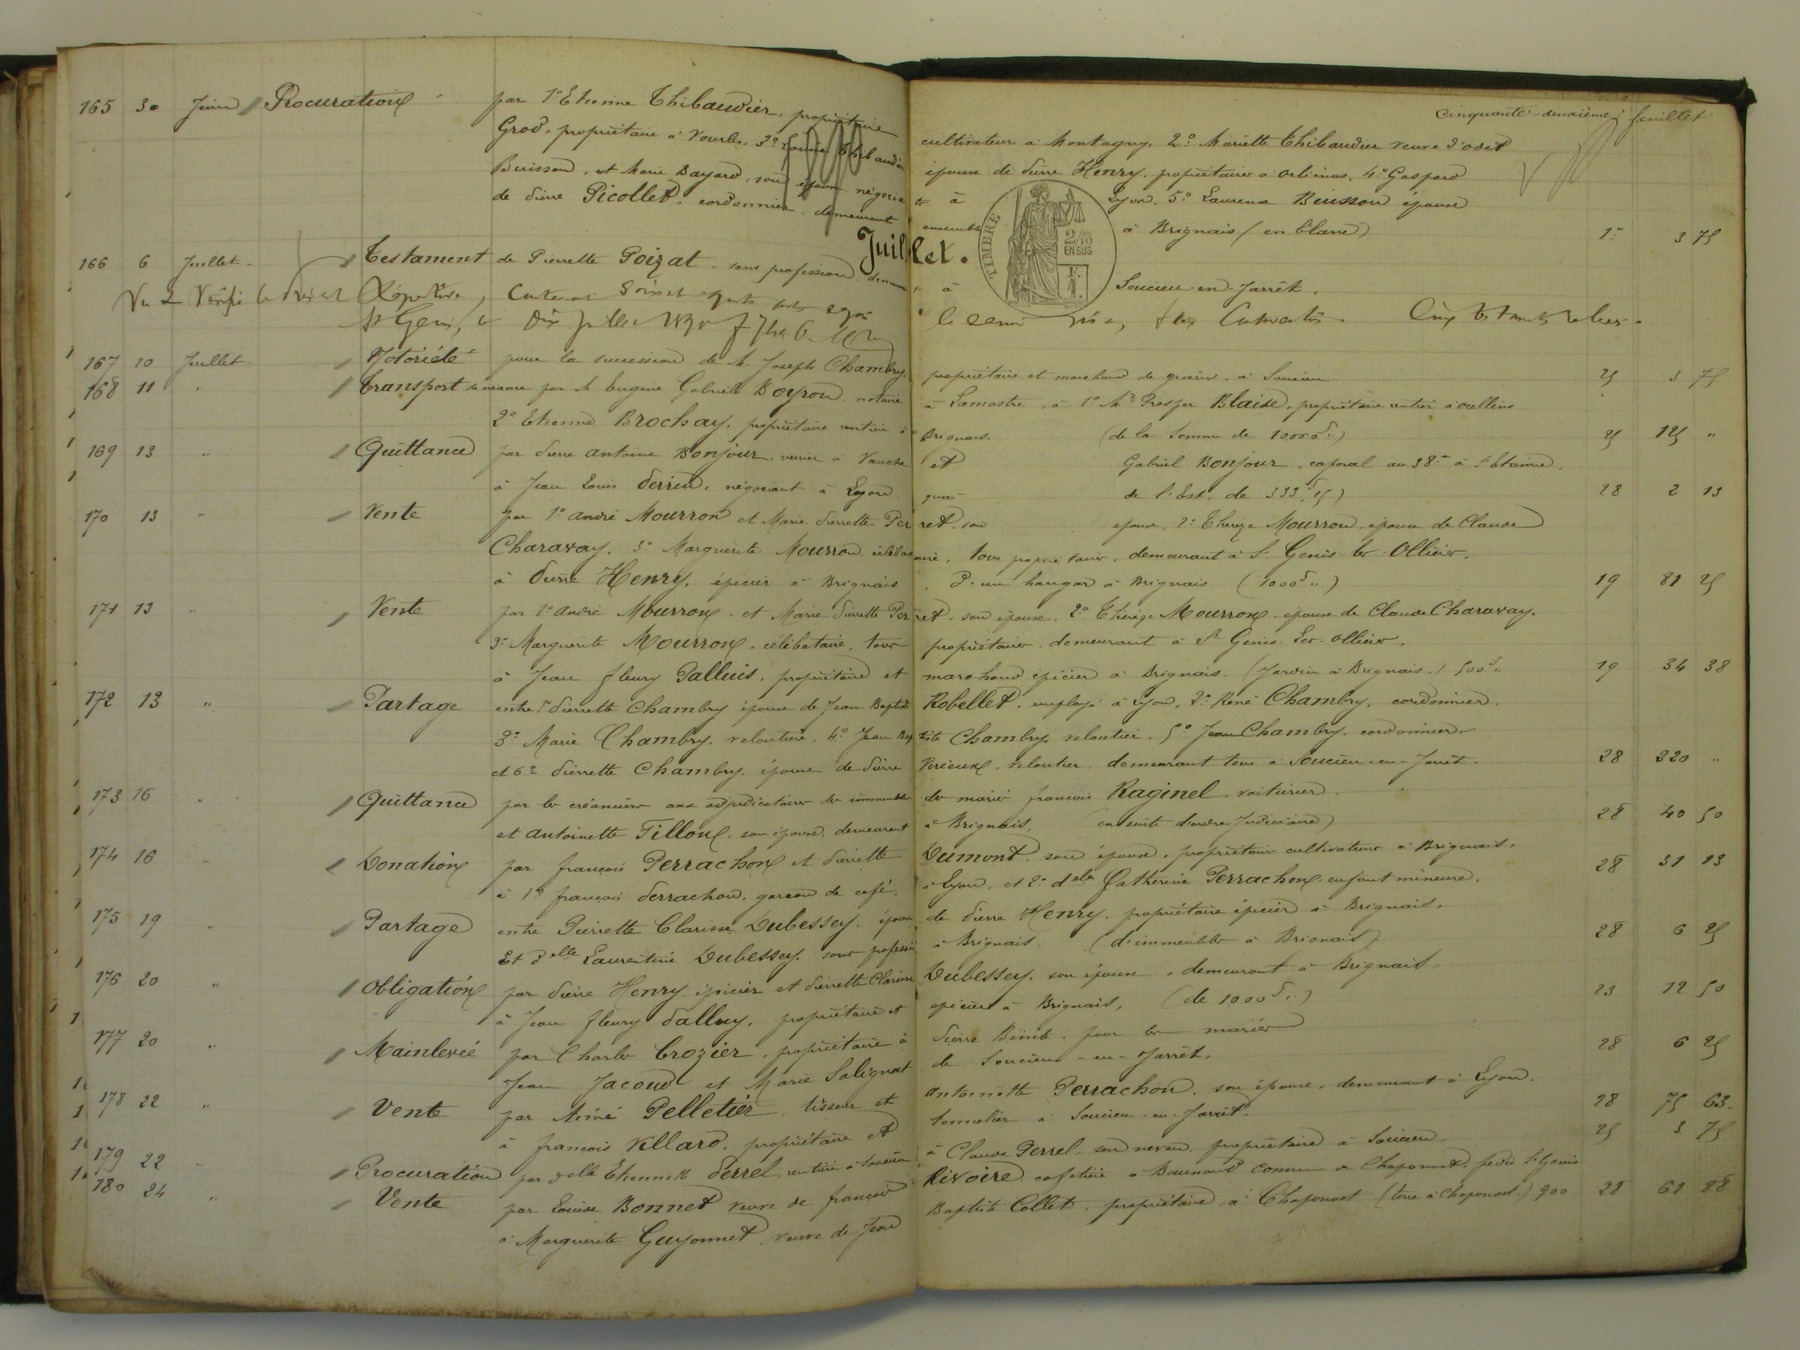 Cinquante-deuxième feuillet
165 30 Juin Procuration par 1º Etienne Thibaudier, propriétaire cultivateur à Montagny, 2º Mariette Thibaudier veuve d'
Grod, propriétaire à Vourles, 3º Louise Thibaudier épouse de Pierre Henry, propriétaires à Orliénas, 4º Gaspard
Buisson, et Marie Bayard, son épouse négociants à Lyon, 5º Laurena Buisson épouse
de Pierre Picollet, cordonnier, demeurant ensemble à Brignais (en blanc) 3 75
Juillet.
TIMBRE 2/10 EN SUS
166 6 Juillet Testament de Pierrette Poizat, sans profession demeurant à Soucieu-en-Jarrêt.
Vu et Vérifié le présent Répertoire,
St Genis, le dix juillet
167 10 Juillet Notoriété pour la succession de M. Joseph Chambry, propriétaire et marchand de grains à Soucieu 25 3 75
168 11 " Transport de créance par M. Eugène Gabriel Boyron, notaire à Lamastre, à 1º Mr Prosper Blaise, propriétaire rentier à Oullins
2º Etienne Brochay, propriétaire rentier à Brignais. (de la somme de 10000f) 25 125 "
169 13 " Quittance par Pierre Antoine Bonjour, verrier à et Gabriel Bonjour, caporal au 38e à St Etienne,
à Jean Louis Perrin, négociant à Lyon de l'Est. de 333f.15) 28 2 13
170 13 " Vente par 1º André Mourron et Marie Pierrette Perret, son épouse, 2º Thérèze Mourron, épouse de Claude
Charavay, 3º Marguerite Mourron célibataire, tous propriétaires, demeurant à St Genis-les-Ollières,
à Pierre Henry, épicier à Brignais. d'un hangar à Brignais (1000f..) 19 81 25
171 13 " Vente par 1º André Mourron et Marie Pierrette Perret, son épouse, 2º Thérèze Mourron, épouse de Claude Charavay,
3º Marguerite Mourron, célibataire, tous propriétaires, demeurant à St Genis-les-Ollières,
à Jean Fleury Palluis, propriétaire et marchand épicier à Brignais (Jardin à Brignais.) 500f.. 19 34 38
172 13 " Partage entre 1º Pierrette Chambry épouse de Jean Baptiste Robellet, employé à Lyon, 2º René Chambry, cordonnier,
3º Marie Chambry, veloutière, 4º Jean Baptiste Chambry, veloutier, 5º Jean Chambry, cordonnier
et 6º Pierrette Chambry, épouse de Pierre Verieux, veloutier, demeurant tous à Soucieu-en-Jarrêt. 28 220 "
173 16 " Quittance par les créanciers aux adjudicataires des immeubles des mariés françois Raginel, voiturier
et Antoinette Tillon, son épouse, demeurant à Brignais, (ensuite d'ordre Judiciaire) 28 40 50
174 16 " Donation par françois Perrachon et Pierrette Dumond, son épouse, propriétaires cultivateurs à Brignais,
à 1º françois Perrachon, garçon de café, à Lyon, et 2º delle Catherine Perrachon, enfant mineure. 28 31 13
175 19 " Partage entre Pierrette Clarisse Dubessey, épouse de Pierre Henry, propriétaire épicier à Brignais,
Et delle Laurentine Dubessey, sans profession à Brignais (d'immeubles à Brignais) 28 6 25
176 20 " Obligation par Pierre Henry, épicier et Pierrette Clarisse Dubessey, son épouse, demeurant à Brignais,
à Jean Fleury Palluy, propriétaire et épicier à Brignais, (de 1000f..) 23 12 50
177 20 " Mainlevée par Charles Crozier, propriétaire à Pierre Bénite, pour les mariés
Jean Jacoud et Marie Salignat de Soucieu-en-Jarrêt. 28 6 25
178 22 " Vente par Aimé Pelletier, tisseur et Antoinette Perrachon, son épouse, demeurant à Lyon,
à françois Villard, propriétaire et tonnelier à Soucieu-en-Jarrêt. 28 75 63
179 22 " Procuration par delle Etiennette Perrel, rentière à Soucieu à Claude Perrel, son neveu, propriétaire à Soucieu 25 3 75
180 24 " Vente par Louise Bonnet veuve de françois Rivoire, cafetière à Beaunant commune de Chaponost, près St Genis
à Marguerite Guyonnet, veuve de Jean Baptiste Collet, propriétaire à Chaponost (terre à Chaponost.) 900 28 61 88